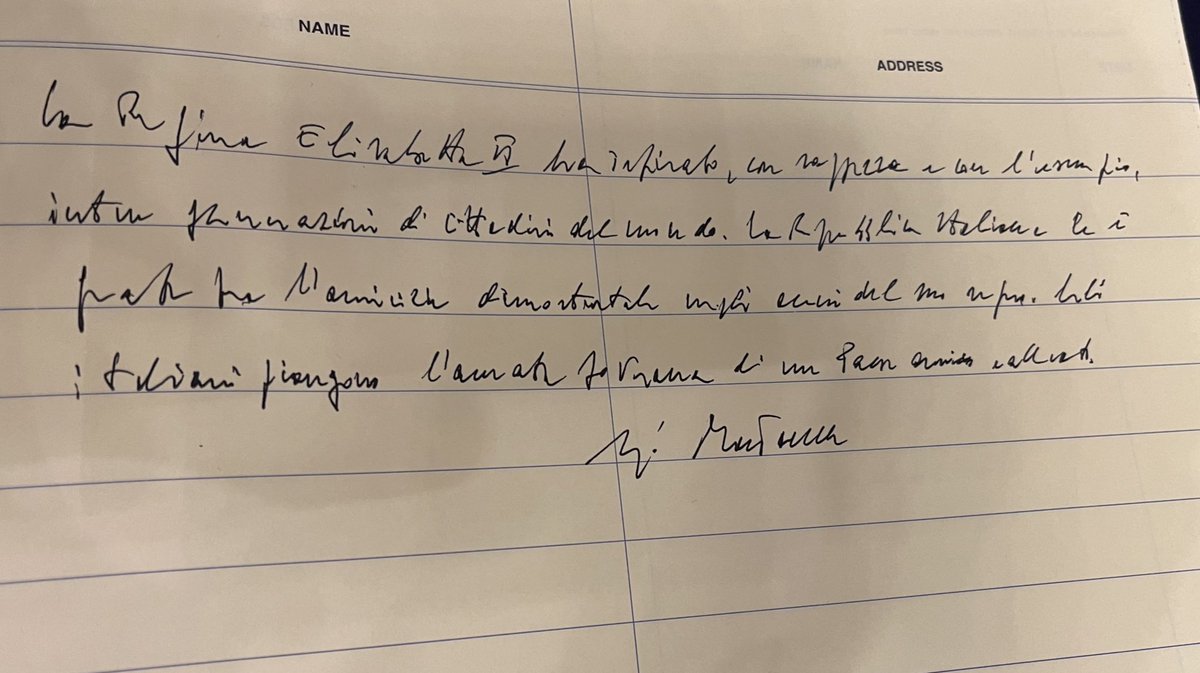 NAME
ADDRESS
La Regina Elisabetta II ha ispirato, con saggezza e con l'esempio,
intere generazioni di cittadini del mondo. La Repubblica Italiana le è
grata per l'amicizia dimostrata negli anni del suo regno. Gli
italiani piangono l'amata Sovrana di un Paese amico e alleato.
Mattarella